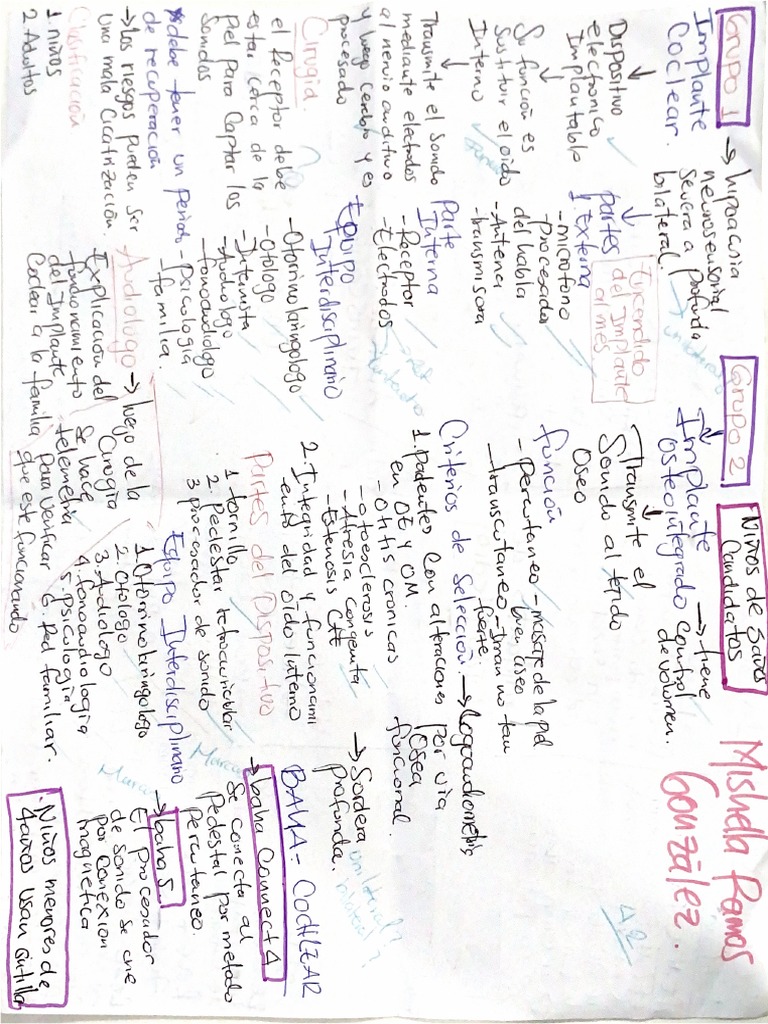 Grupo 1
Implante
Coclear.
→ hipoacusia
neurosensorial
severa a profunda
bilateral.
Dispositivo
electronico
Implantable
Su función es
Sustituir el oido
Interno
Transmite el sonido
mediante electrodos
al nervio auditivo
y luego cerebro y es
procesado
partes
1. Externa
- microfono
- procesador
del habla
- Antena
- transmisora
Encendido
del Implante
al mes
Parte
Interna
- Receptor
- Electrodos
Cirugia.
el Receptor debe
estar cerca de la
piel para captar los
Sonidos
*debe tener un periodo
de recuperación
→ Los riesgos pueden ser
Una mala Cicatrización.
Clasificación
1. niños
2. Adultos
Equipo
Interdisciplinario
- Otorrinolaringologo
- Otologo
- Internista
- Audiologo
- fonoaudiologo
- Psicologia
- familia.
Audiologo → luego de la
Cirugia
Se hace
telemetria
para verificar
que este funcionando
Explicación del
funcionamiento
del Implante
Coclear a la familia
Grupo 2
Niños de 5años
Candidatos
Implante
osteointegrado
→ tiene
Control
de volumen.
Transmite el
Sonido al tejido
Oseo
función
- Percutaneo - masaje de la piel
buen aseo
- transcutaneo - Iman no tan
fuerte.
Criterios de Selección. → logoaudiometria
1. pacientes con alteraciones por via
en OE y OM.
Osea
funcional.
- Otitis cronicas
- otoesclerosis
- Atresia congenita
- Estenosis CAE
→ Sordera
profunda.
unilateral?
bilateral?
2. Integridad y funcionami
ento del oido Interno
Partes del Dispositivo
1. tornillo
2. Pedestar
3. procesador de sonido
Equipo Interdisciplinario
1. Otorrinolaringologo
2. Otologo
3. Audiologo
4. fonoaudiologia
5. Psicologia
6. Red familiar.
BAHA = COCHLEAR
→ baha Connect 4
Se conecta al
Pedestal por metodo
percutaneo.
→ baha 5
El procesador
de sonido se une
por conexion
magnetica
Niños menores de
4años usan cintilla
Mishella Ramos
González.
4.2